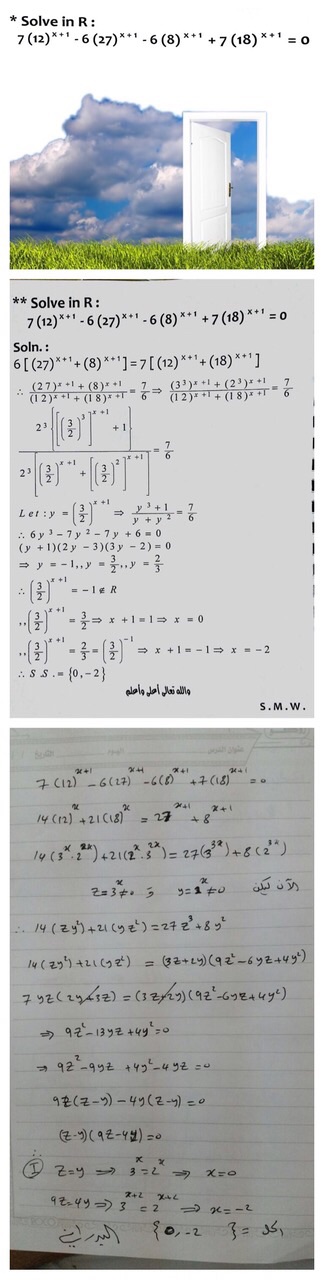 * Solve in R :
7 (12)^{x+1} - 6 (27)^{x+1} - 6 (8)^{x+1} + 7 (18)^{x+1} = 0
** Solve in R :
7 (12)^{x+1} - 6 (27)^{x+1} - 6 (8)^{x+1} + 7 (18)^{x+1} = 0
Soln. :
6 [ (27)^{x+1} + (8)^{x+1} ] = 7 [ (12)^{x+1} + (18)^{x+1} ]
∴ \frac{(27)^{x+1} + (8)^{x+1}}{(12)^{x+1} + (18)^{x+1}} = \frac{7}{6} ⇒ \frac{(3^3)^{x+1} + (2^3)^{x+1}}{(12)^{x+1} + (18)^{x+1}} = \frac{7}{6}
\frac{2^3 \{ [ (\frac{3}{2})^3 ]^{x+1} + 1 \}}{2^3 [ (\frac{3}{2})^{x+1} + [ (\frac{3}{2})^2 ]^{x+1} ]} = \frac{7}{6}
Let : y = (\frac{3}{2})^{x+1} ⇒ \frac{y^3 + 1}{y + y^2} = \frac{7}{6}
∴ 6 y^3 - 7 y^2 - 7 y + 6 = 0
(y + 1)(2y - 3)(3y - 2) = 0
⇒ y = -1,, y = \frac{3}{2},, y = \frac{2}{3}
∴ (\frac{3}{2})^{x+1} = -1 ∉ R
,, (\frac{3}{2})^{x+1} = \frac{3}{2} ⇒ x + 1 = 1 ⇒ x = 0
,, (\frac{3}{2})^{x+1} = \frac{2}{3} = (\frac{3}{2})^{-1} ⇒ x + 1 = -1 ⇒ x = -2
∴ S.S. = {0, -2}
والله تعالى أعلى وأعلم
S.M.W.
7(12)^{x+1} - 6(27)^{x+1} - 6(8)^{x+1} + 7(18)^{x+1} = 0
14(12)^x + 21(18)^x = 27^{x+1} + 8^{x+1}
14(3^x · 2^{2x}) + 21(2^x · 3^{2x}) = 27(3^{3x}) + 8(2^{3x})
الآن ليكن y = 2^x ≠ 0 و z = 3^x ≠ 0
∴ 14(zy^2) + 21(yz^2) = 27z^3 + 8y^3
14(zy^2) + 21(yz^2) = (3z+2y)(9z^2 - 6yz + 4y^2)
7yz(2y+3z) = (3z+2y)(9z^2 - 6yz + 4y^2)
⇒ 9z^2 - 13yz + 4y^2 = 0
⇒ 9z^2 - 9yz + 4y^2 - 4yz = 0
9z(z-y) - 4y(z-y) = 0
(z-y)(9z-4y) = 0
I z = y ⇒ 3^x = 2^x ⇒ x = 0
9z = 4y ⇒ 3^{x+2} = 2^{x+2} ⇒ x = -2
الحل = { 0, -2 }